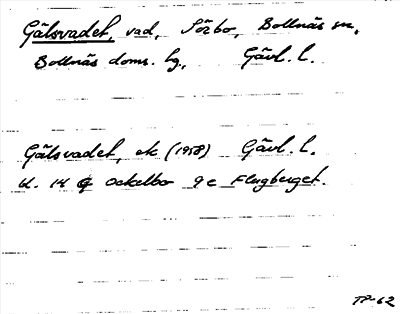 Gälsvadet, vad, Sörbo, Bollnäs sn,
Bollnäs doms. hg, Gävl. l.
Gälsvadet, ek (1958) Gävl. l.
bl. 14 G Ockelbo 9c Flugberget.
TP-62